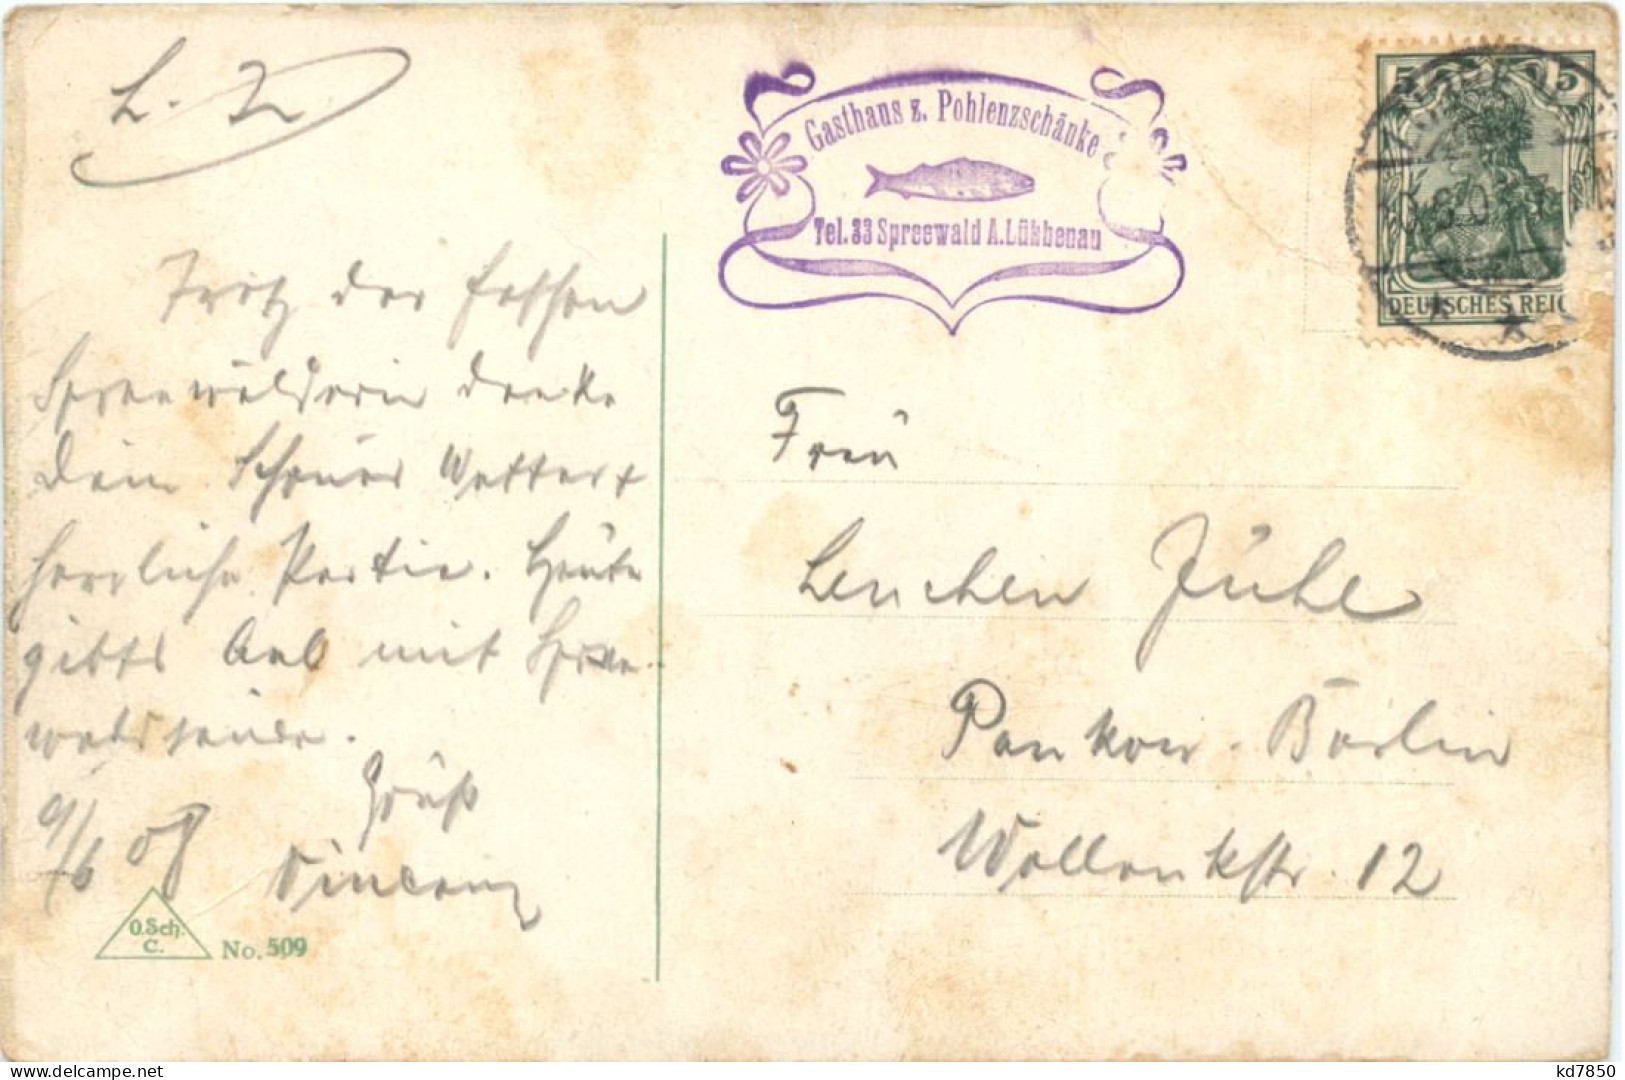 L. Z.
Gasthaus z. Pohlenzschänke
Tel. 33 Spreewald A. Lübbenau
5 5
DEUTSCHES REIC
Trotz der feschen
Spreewälderin denke
Dein. Schönes Wetter +
herrliche Partie. Heute
gibts Aal mit Spree-
waldsauce.
Gruß
9/6 08
Frau
Lenchen Jühe
Pankow-Berlin
Wollankstr. 12
O.Sch.
C.
No. 509
kd7850